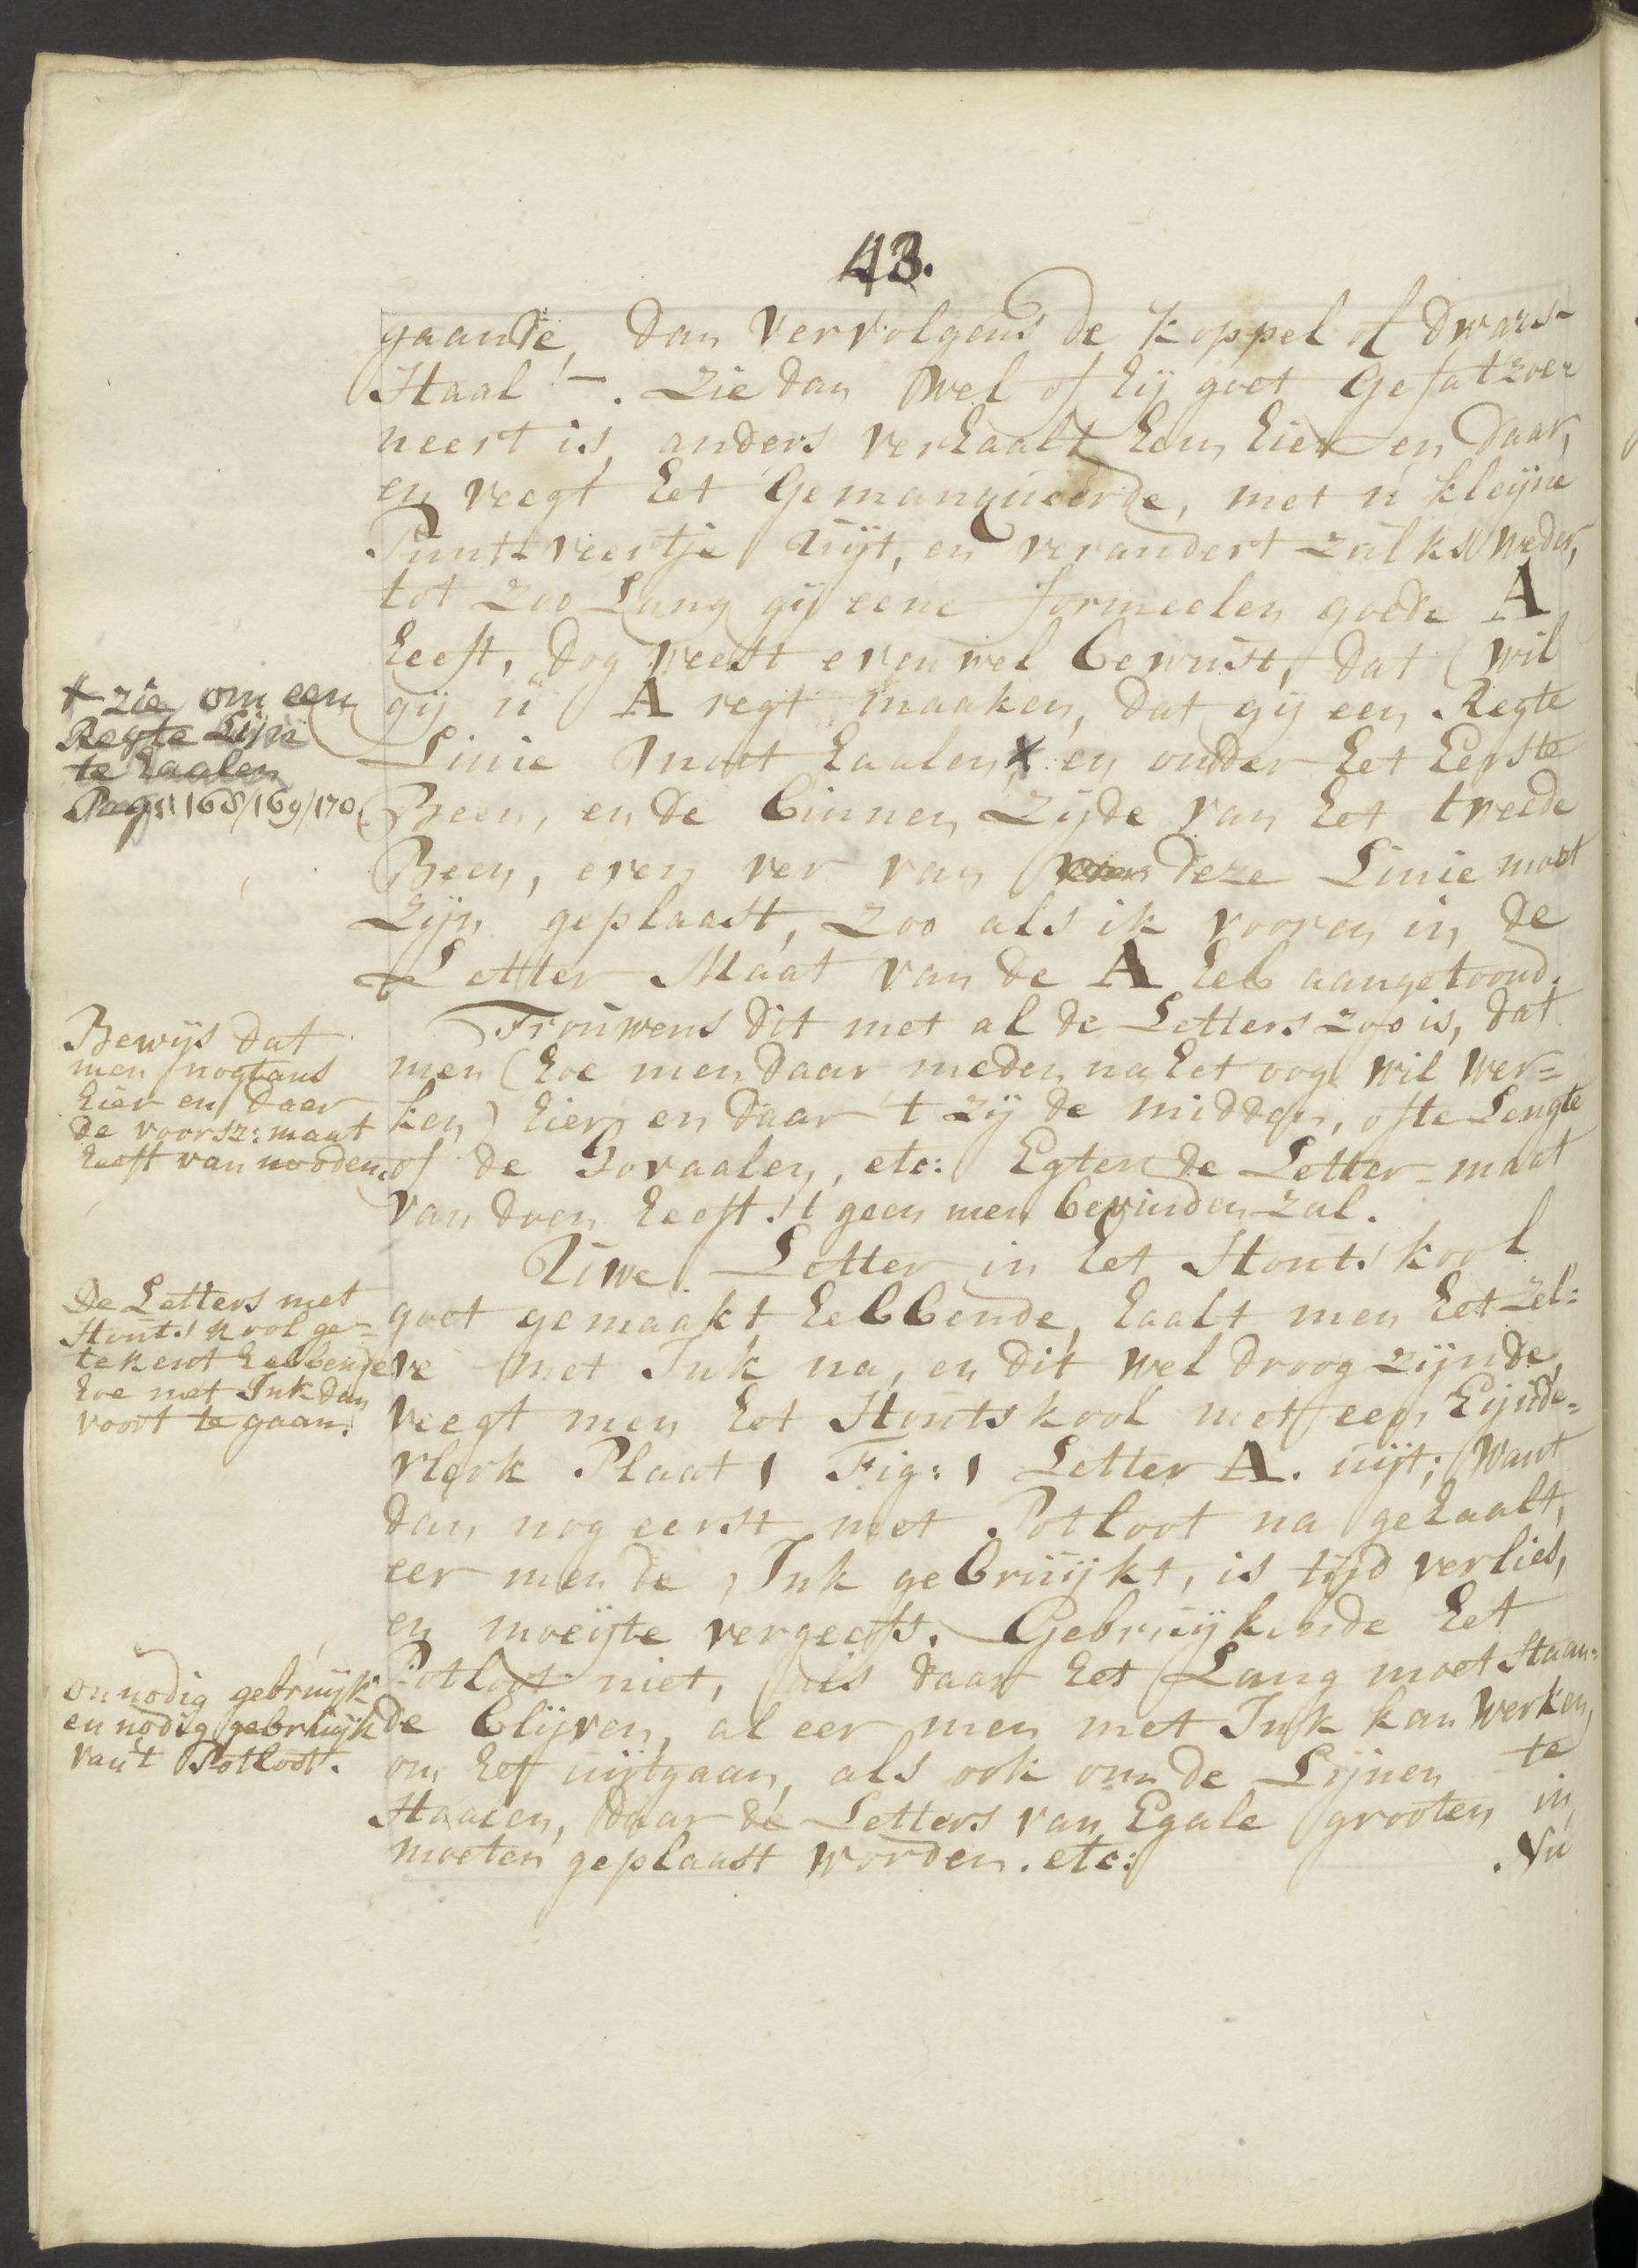 43.
gaande, dan vervolgens de koppel of dwars-
Haal !-. Zie dan wel of hij goet Gefatzoe-
neert is, anders verhaalt hem hier en daar,
en veegt het Gemanqueerde, met u kleyne
Punt-veertje uijt, en verandert zulks weder,
tot zoo Lang gij eene formeelen goede A
heeft, dog weest evenwel bewust, dat wil
gij u A regt maaken, dat gij een Regte
Linie moet haalen X en onder het Eerste
Been, en de binnen Zijde van het tweede
Been, even ver van deze Linie moet
Zijn geplaast, zoo als ik vooren in de
Letter Maat van de A heb aangetoond.
Trouwens dit met al de Letters zoo is, dat
men (hoe men daar meden na het oog wil wer=
ken) hier en daar 't zij de midden, ofte Lengte
of de Sovaalen, etc: Egter de Letter=maat
van doen heeft. 't geen men bevinden zal.
Uwe Letter in het Houtskool
goet gemaakt hebbende, haalt men het zel=
ve met Ink na, en dit wel droog zijnde,
veegt men het Houtskool met een Eijnde=
vlerk Plaat 1 Fig: 1 Letter A. uijt; Want
dan nog eerst met Potloot na gehaalt,
eer men de Ink gebruijkt, is tijd verlies,
en moeijte vergeefs. Gebruijkende het
Potloot niet, als daar het Lang moet staan=
de blijven, al eer men met Ink kan Werken,
om het uijtgaan, als ook om de Lijnen te
Haalen, daar de Letters van Egale grooten in
moeten geplaast worden. etc:
Nu
X zie om een
Regte Lijn
te haalen
Pag: 168/169/170
Bewijs dat
men nogtans
hier en daer
de voorsz: maat
heeft van nooden.
De Letters met
Houtskool ge=
tekent hebbende
hoe met Ink dan
voort te gaan.
onnodig gebruijk
en nodig gebruijk
van't Potloot.